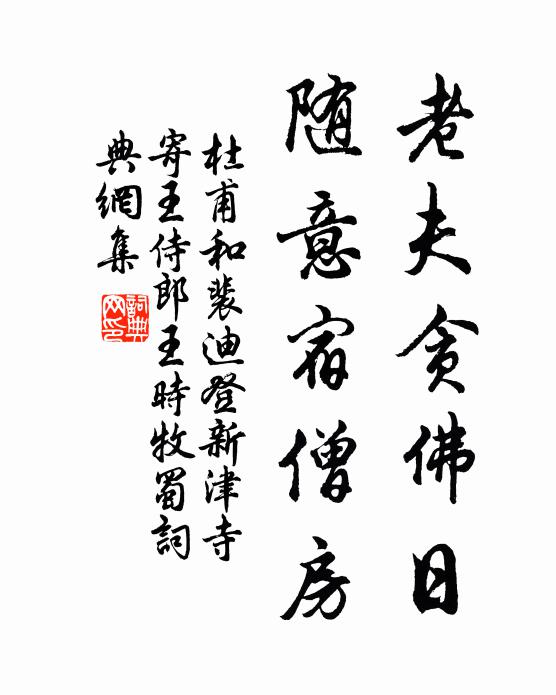 老夫贪佛日
随意宿僧房
杜甫和裴迪登新津寺
寄王侍郎王時牧蜀詞
典網集
詞典
网印